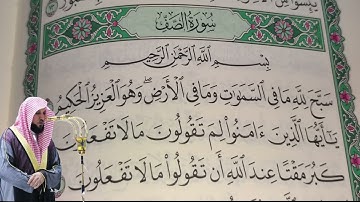 سُورَةُ الصَّفِّ
بِسْمِ اللَّهِ الرَّحْمَٰنِ الرَّحِيمِ
سَبَّحَ لِلَّهِ مَا فِي السَّمَٰوَٰتِ وَمَا فِي الْأَرْضِ ۖ وَهُوَ الْعَزِيزُ الْحَكِيمُ
يَٰٓأَيُّهَا الَّذِينَ ءَامَنُوا لِمَ تَقُولُونَ مَا لَا تَفْعَلُونَ
كَبُرَ مَقْتًا عِندَ اللَّهِ أَن تَقُولُوا مَا لَا تَفْعَلُونَ